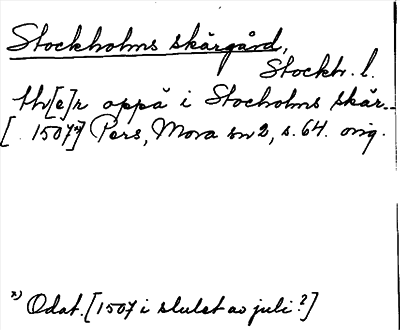 Stockholms skärgård,
Stockh. l.
thr[e]r oppå i Stocholms skär..
[1507*)] Pers, Mora sn 2, s. 64. orig.
*) Odat. [1507 i slutet av juli?]